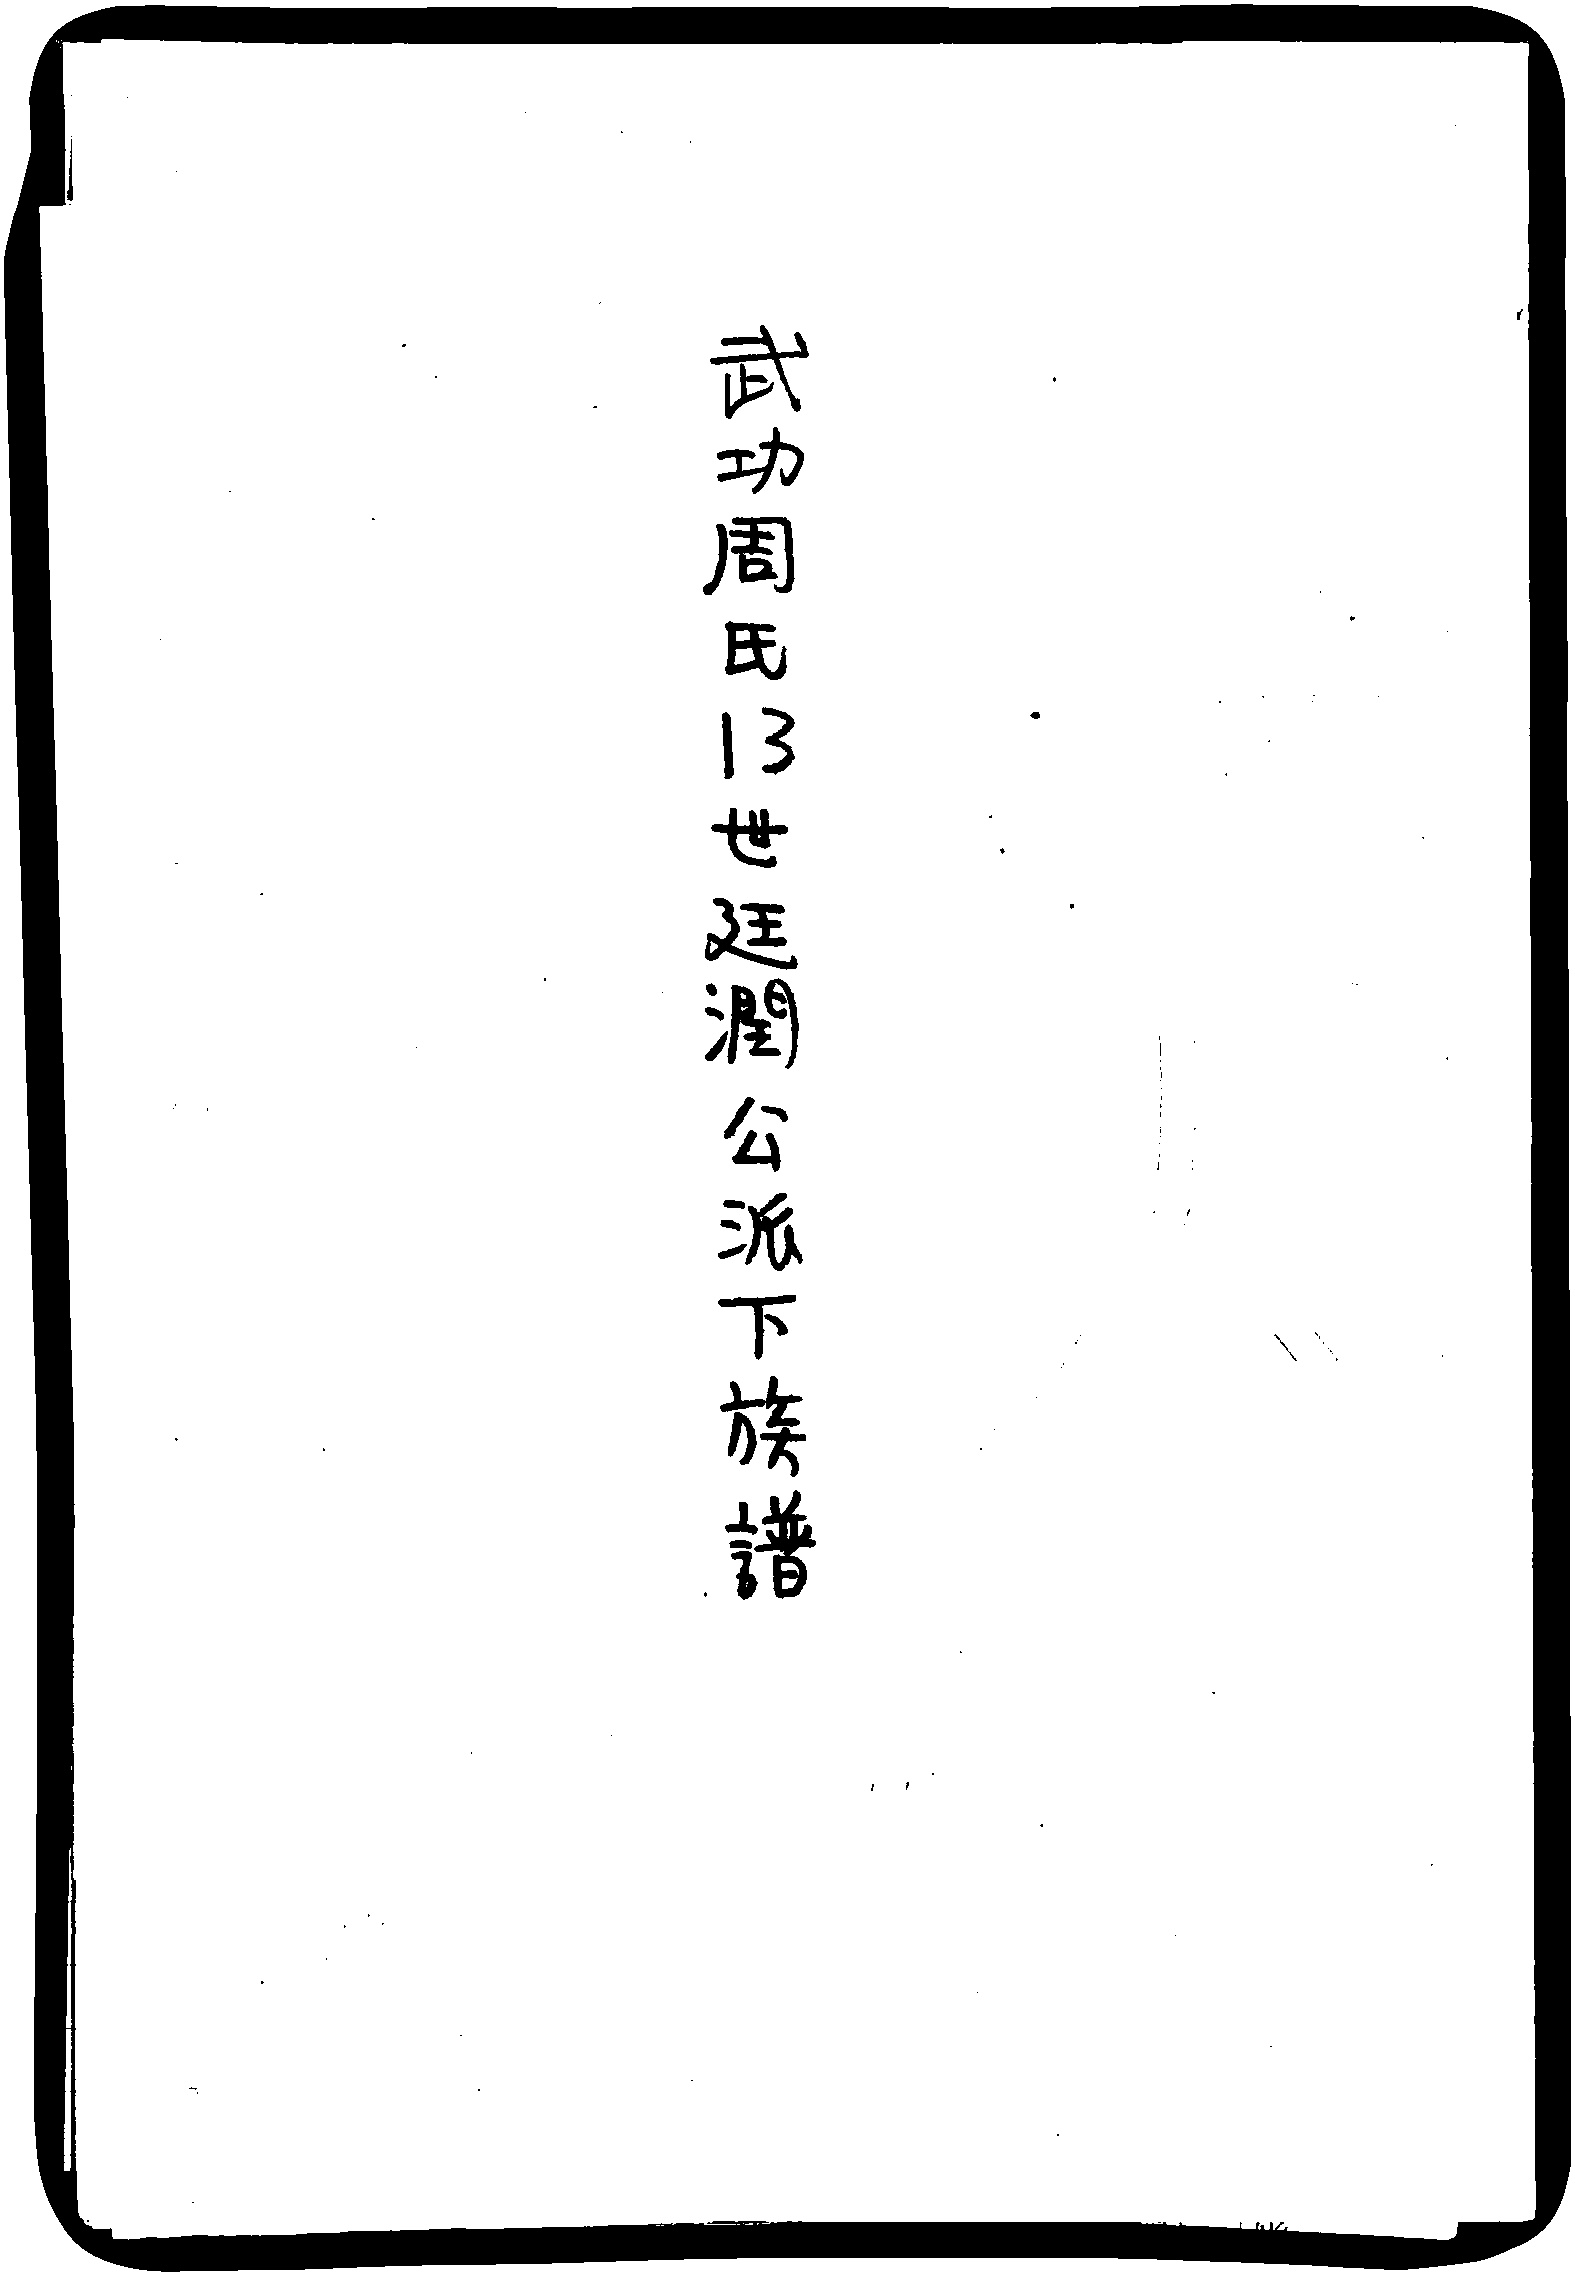 武功周氏13世廷潤公派下族譜